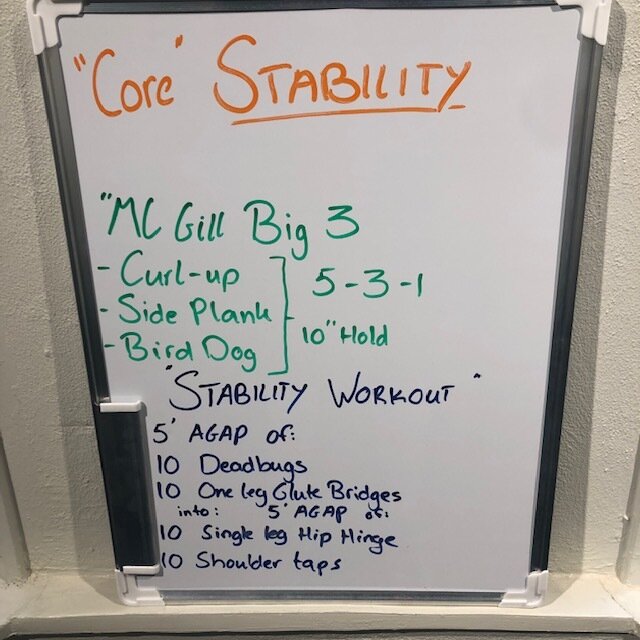 "Core" STABILITY
"MC Gill Big 3
- Curl-up
- Side Plank
- Bird Dog
5-3-1
10" Hold
"STABILITY WORKOUT"
5' AGAP of:
10 Deadbugs
10 One leg Glute Bridges
into: 5' AGAP of:
10 Single leg Hip Hinge
10 Shoulder taps